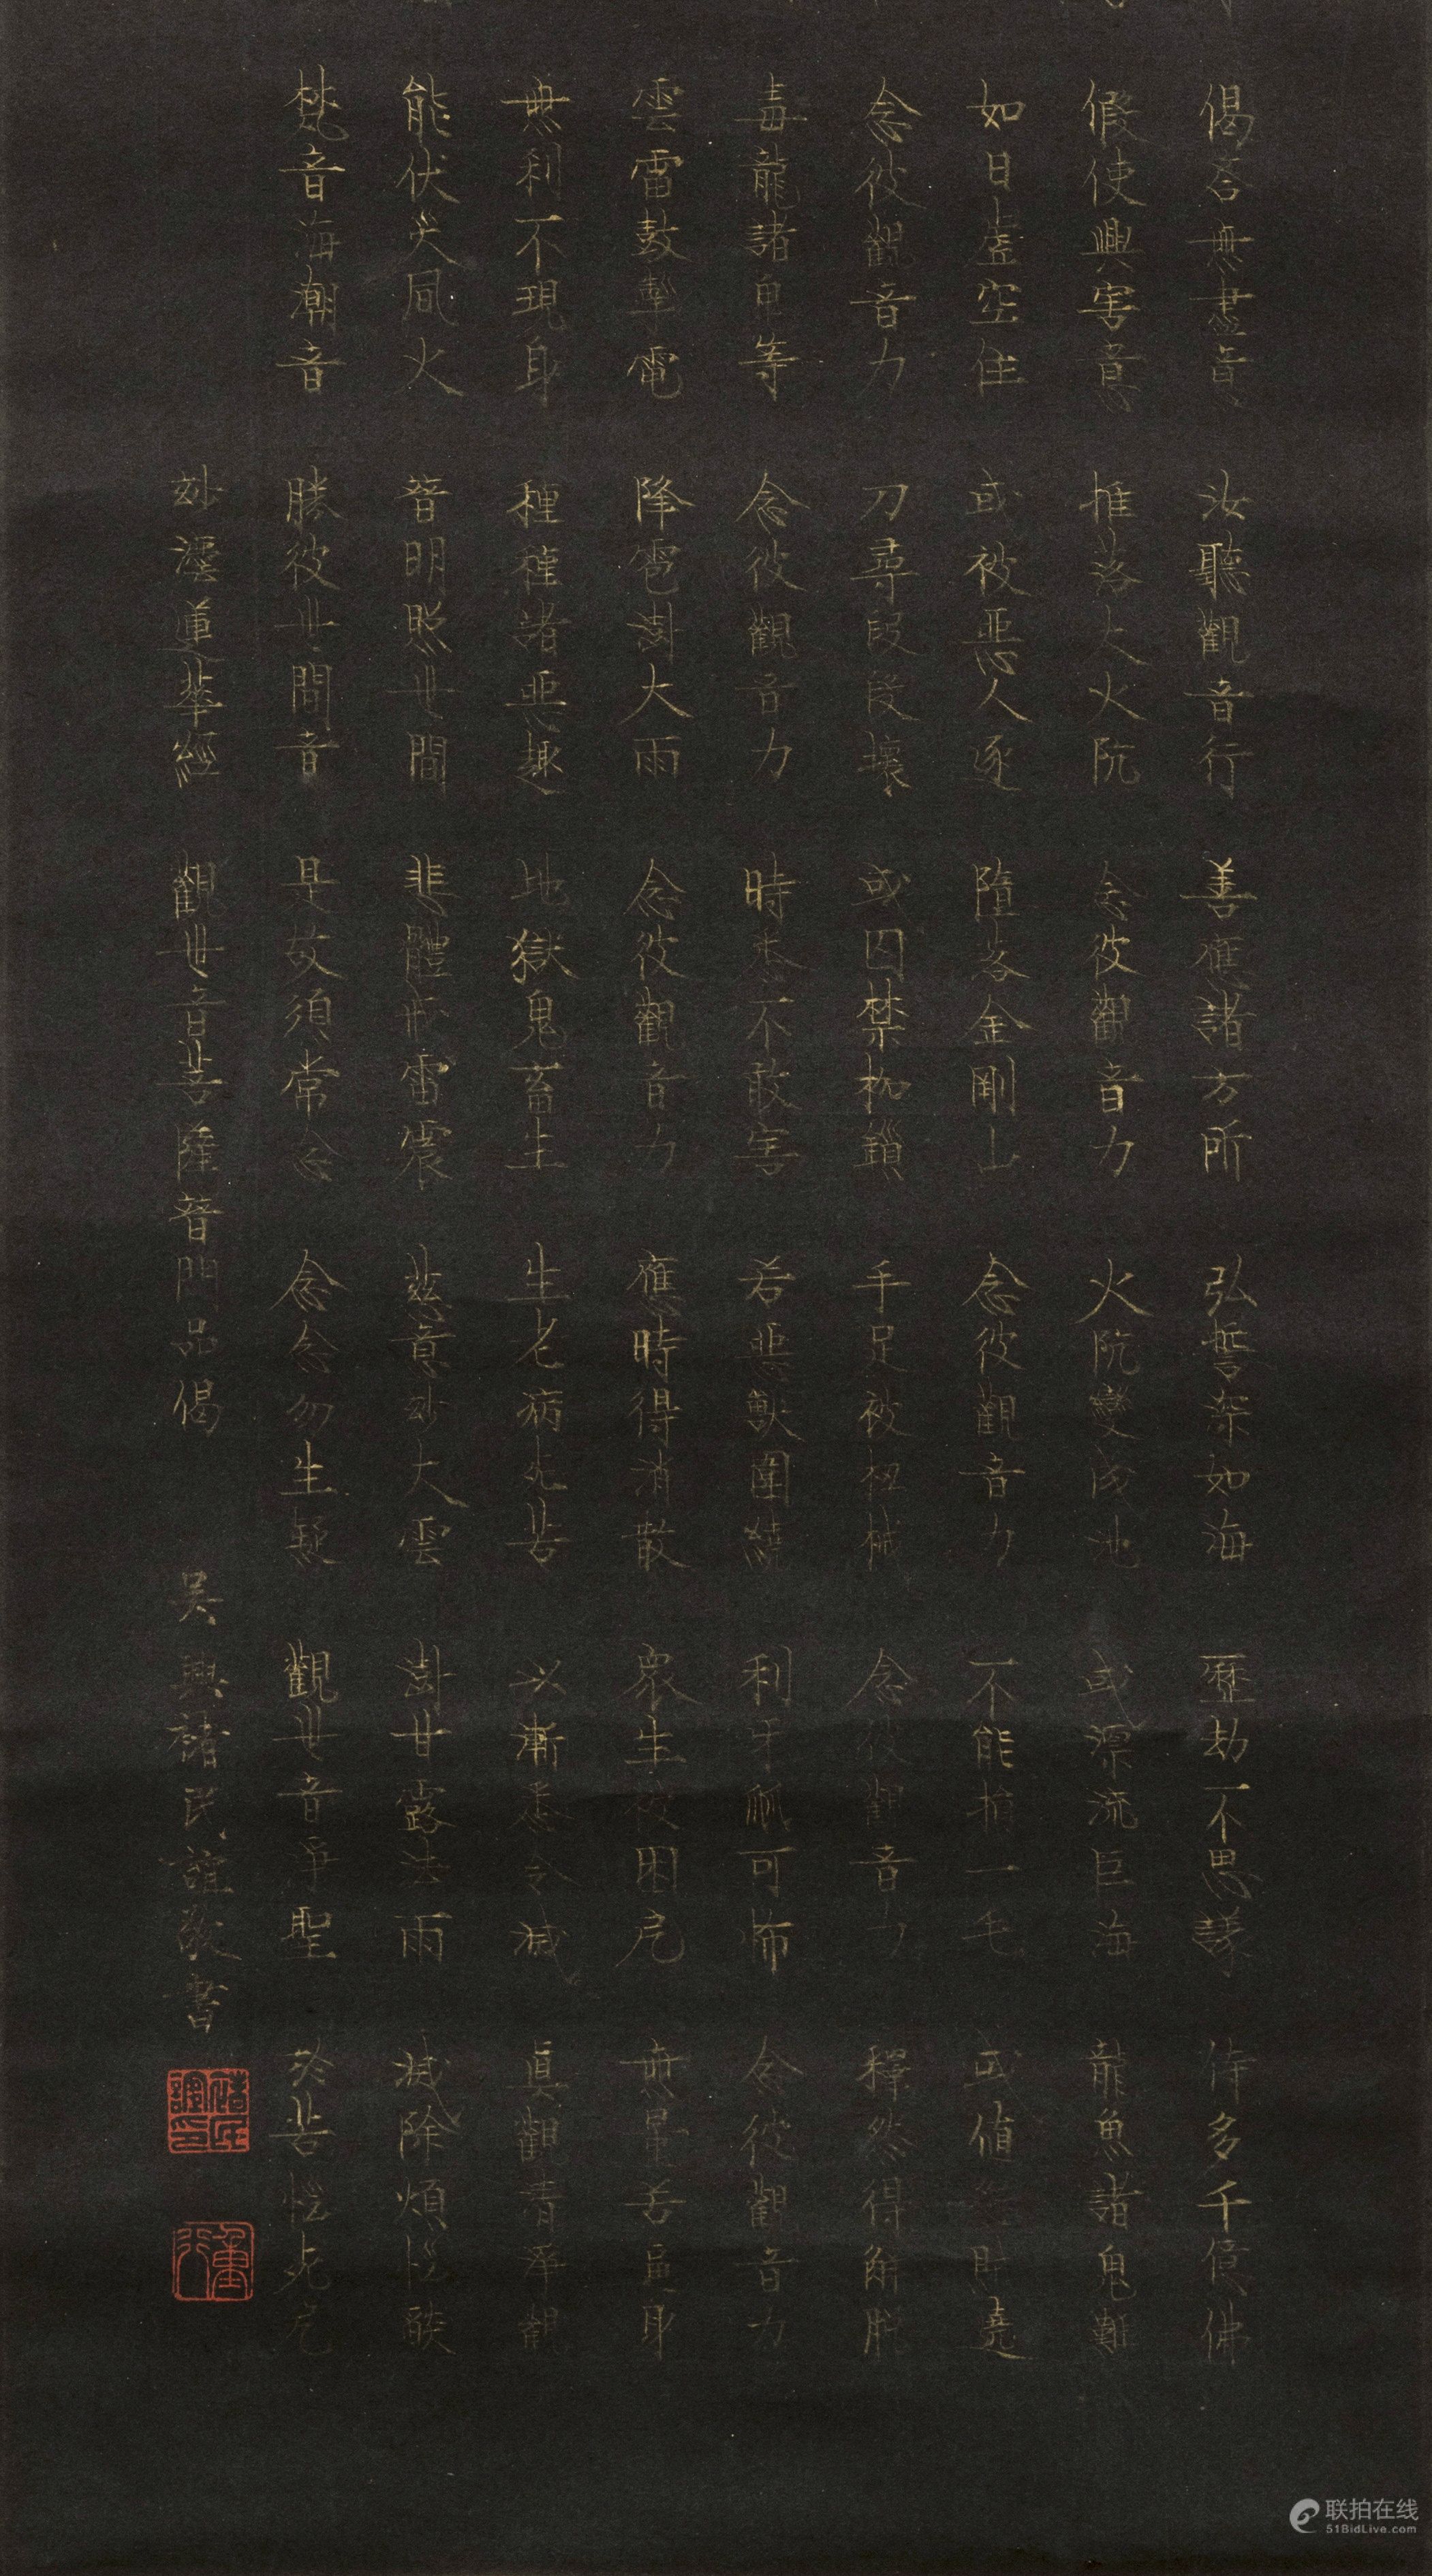 偈荅無盡意 汝聽觀音行 善應諸方所 弘誓深如海 歷劫不思議 侍多千億佛
假使興害意 推落大火阬 念彼觀音力 火阬變成池 或漂流巨海 龍魚諸鬼難
如日虛空住 或被惡人逐 墮落金剛山 念彼觀音力 不能損一毛 或值怨賊遶
念彼觀音力 刀尋段段壞 或囚禁枷鎖 手足被杻械 念彼觀音力 釋然得解脫
毒龍諸鬼等 念彼觀音力 時悉不敢害 若惡獸圍繞 利牙爪可怖 念彼觀音力
雲雷鼓掣電 降雹澍大雨 念彼觀音力 應時得消散 眾生被困厄 無量苦逼身
無利不現身 種種諸惡趣 地獄鬼畜生 生老病死苦 以漸悉令滅 真觀清淨觀
能伏災風火 普明照世間 悲體戒雷震 慈意妙大雲 澍甘露法雨 滅除煩惱燄
梵音海潮音 勝彼世間音 是故須常念 念念勿生疑 觀世音淨聖 於苦惱死厄
妙灋蓮華經 觀世音菩薩普門品偈 吳興褚民誼敬書
褚民誼印
重行
联拍在线
51BidLive.com